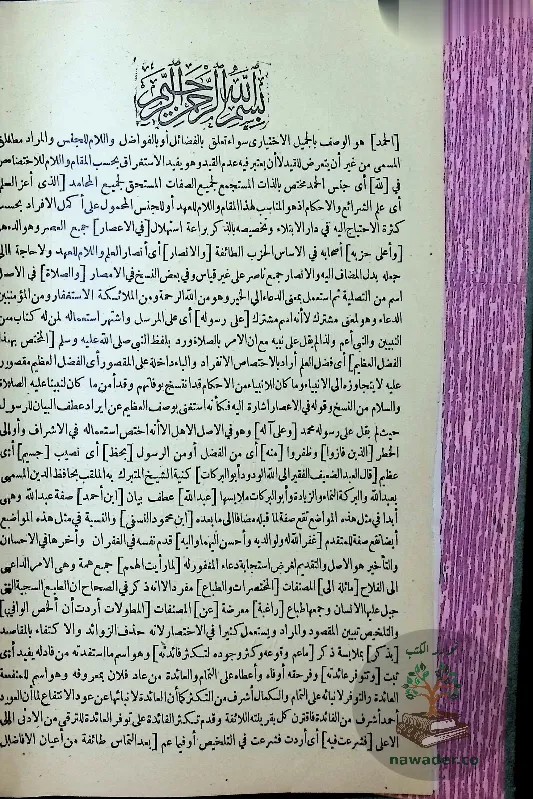 بسم الله الرحمن الرحيم
[الحمد] هو الوصف بالجميل الاختيارى سواء تعلق بالفضائل أو بالفواضل واللام للجنس والمراد مطلق
المسمى من غير أن يتعرض للقيد لا أن يعتبر فيه عدم القيد وهو يفيد الاستغراق بحسب المقام واللام للاختصاص
فى [لله] أى جنس الحمد مختص بالذات المستجمع لجميع الصفات المستحق لجميع المحامد [الذى أعز العلم
أى علم الشرائع والاحكام اذ هو المناسب لهذا المقام واللام للعهد أو للجنس المحمول على أكمل الافراد بحسب
كثرة الاحتياج اليه فى دار الابتلاء وتخصيصه بالذكر براعة استهلال [فى الاعصار] جميع العصر وهو الدهر
[وأعلى حزبه] أصحابه فى الاساس الحزب الطائفة [والانصار] أى أنصار العلم واللام للعهد ولا حاجة الى
جعله بدل المضاف اليه والانصار جمع ناصر على غير قياس وفى بعض النسخ فى الامصار [والصلاة] فى الاصل
اسم من التصلية ثم استعمل بمعنى الدعاء الى الخير وهو من الله الرحمة ومن الملائكة الاستغفار ومن المؤمنين
الدعاء وهو لمعنى مشترك لا أنه اسم مشترك [على رسوله] أى على المرسل واشتهر استعماله لمن له كتاب من
النبيين والنبى أعم ولذا لم يقل على نبيه مع ان الامر بالصلاة ورد بلفظ النبى صلى الله عليه وسلم [المختص بهذا
الفضل العظيم] أى فضل العلم أراد بالاختصاص الانفراد والباء داخلة على المقصور أى الفضل العظيم مقصور
عليه لا يتجاوزه الى الانبياء وما كان للانبياء من الاحكام قد انتسخ بوفاتهم وقد أمن ما كان لنبينا عليه الصلاة
والسلام من النسخ وقوله فى الاعصار اشارة اليه فكأنه استغنى بوصف العظيم عن ايراد عطف البيان للرسول
حيث لم يقل على رسوله محمد [وعلى آله] وهو فى الاصل الاهل الا أنه اختص استعماله فى الاشراف وأولى
الخطر [الذين فازوا] وظفروا [منه] أى من الفضل أو من الرسول [بحظ] أى نصيب [جسيم] أى
عظيم [قال العبد الضعيف الفقير الى الله الودود أبو البركات] كنية الشيخ المتبرك به الملقب بحافظ الدين المسمى
بعبد الله والبركة النماء والزيادة وأبو البركات ملابسها [عبد الله] عطف بيان [ابن أحمد] صفة عبد الله وهى
أبدا فى مثل هذه المواضع تقع صفة لما قبله مضافا الى ما بعده [ابن محمود النسفى] والنسبة فى مثل هذه المواضع
أيضا تقع صفة للمتقدم [غفر الله له ولوالديه وأحسن اليهما واليه] قدم نفسه فى الغفران وأخرها فى الاحسان
والتأخير هو الاصل والتقديم لغرض استجابة دعاء المغفور له [لما رأيت الهمم] جمع همة وهى الامر الداعى
الى الفلاح [مائلة الى] المصنفات [المختصرات والطباع] مفرد لا انه ذكر فى الصحاح ان الطبع السجية التى
جبل عليها الانسان وجمعها طباع [راغبة] معرضة [عن] المصنفات [المطولات أردت أن ألخص الوافى]
والتلخيص تبيين المقصود والمراد ويستعمل كثيرا فى الاختصار لانه حذف الزوائد والاكتفاء بالمقاصد
[بذكر] بملابسة ذكر [ما عم وقوعه وكثر وجوده لتكثر فائدته] وهو اسم ما استفدته من فاد له يفيد أى
ثبت [وتتوفر عائدته] وفر حقه أوفاه وأعطاه على التمام والعائدة من عاد فلان بمعروفه وهو اسم للمنفعة
العائدة والتوفر لانبائه على التمام والكمال أشرف من التكثر كما أن العائدة لانبائها عن عود الانتفاع لما أن العود
أحمد أشرف من الفائدة فاقترن كل بقرينته اللائقة وقدم تكثر الفائدة على توفر العائدة للترقى من الادنى الى
الاعلى [فشرعت فيه] أى أردت فشرعت فى التلخيص أو فيما عم [بعد التماس طائفة من أعيان الافاضل
نوادر الكتب
nawader.co